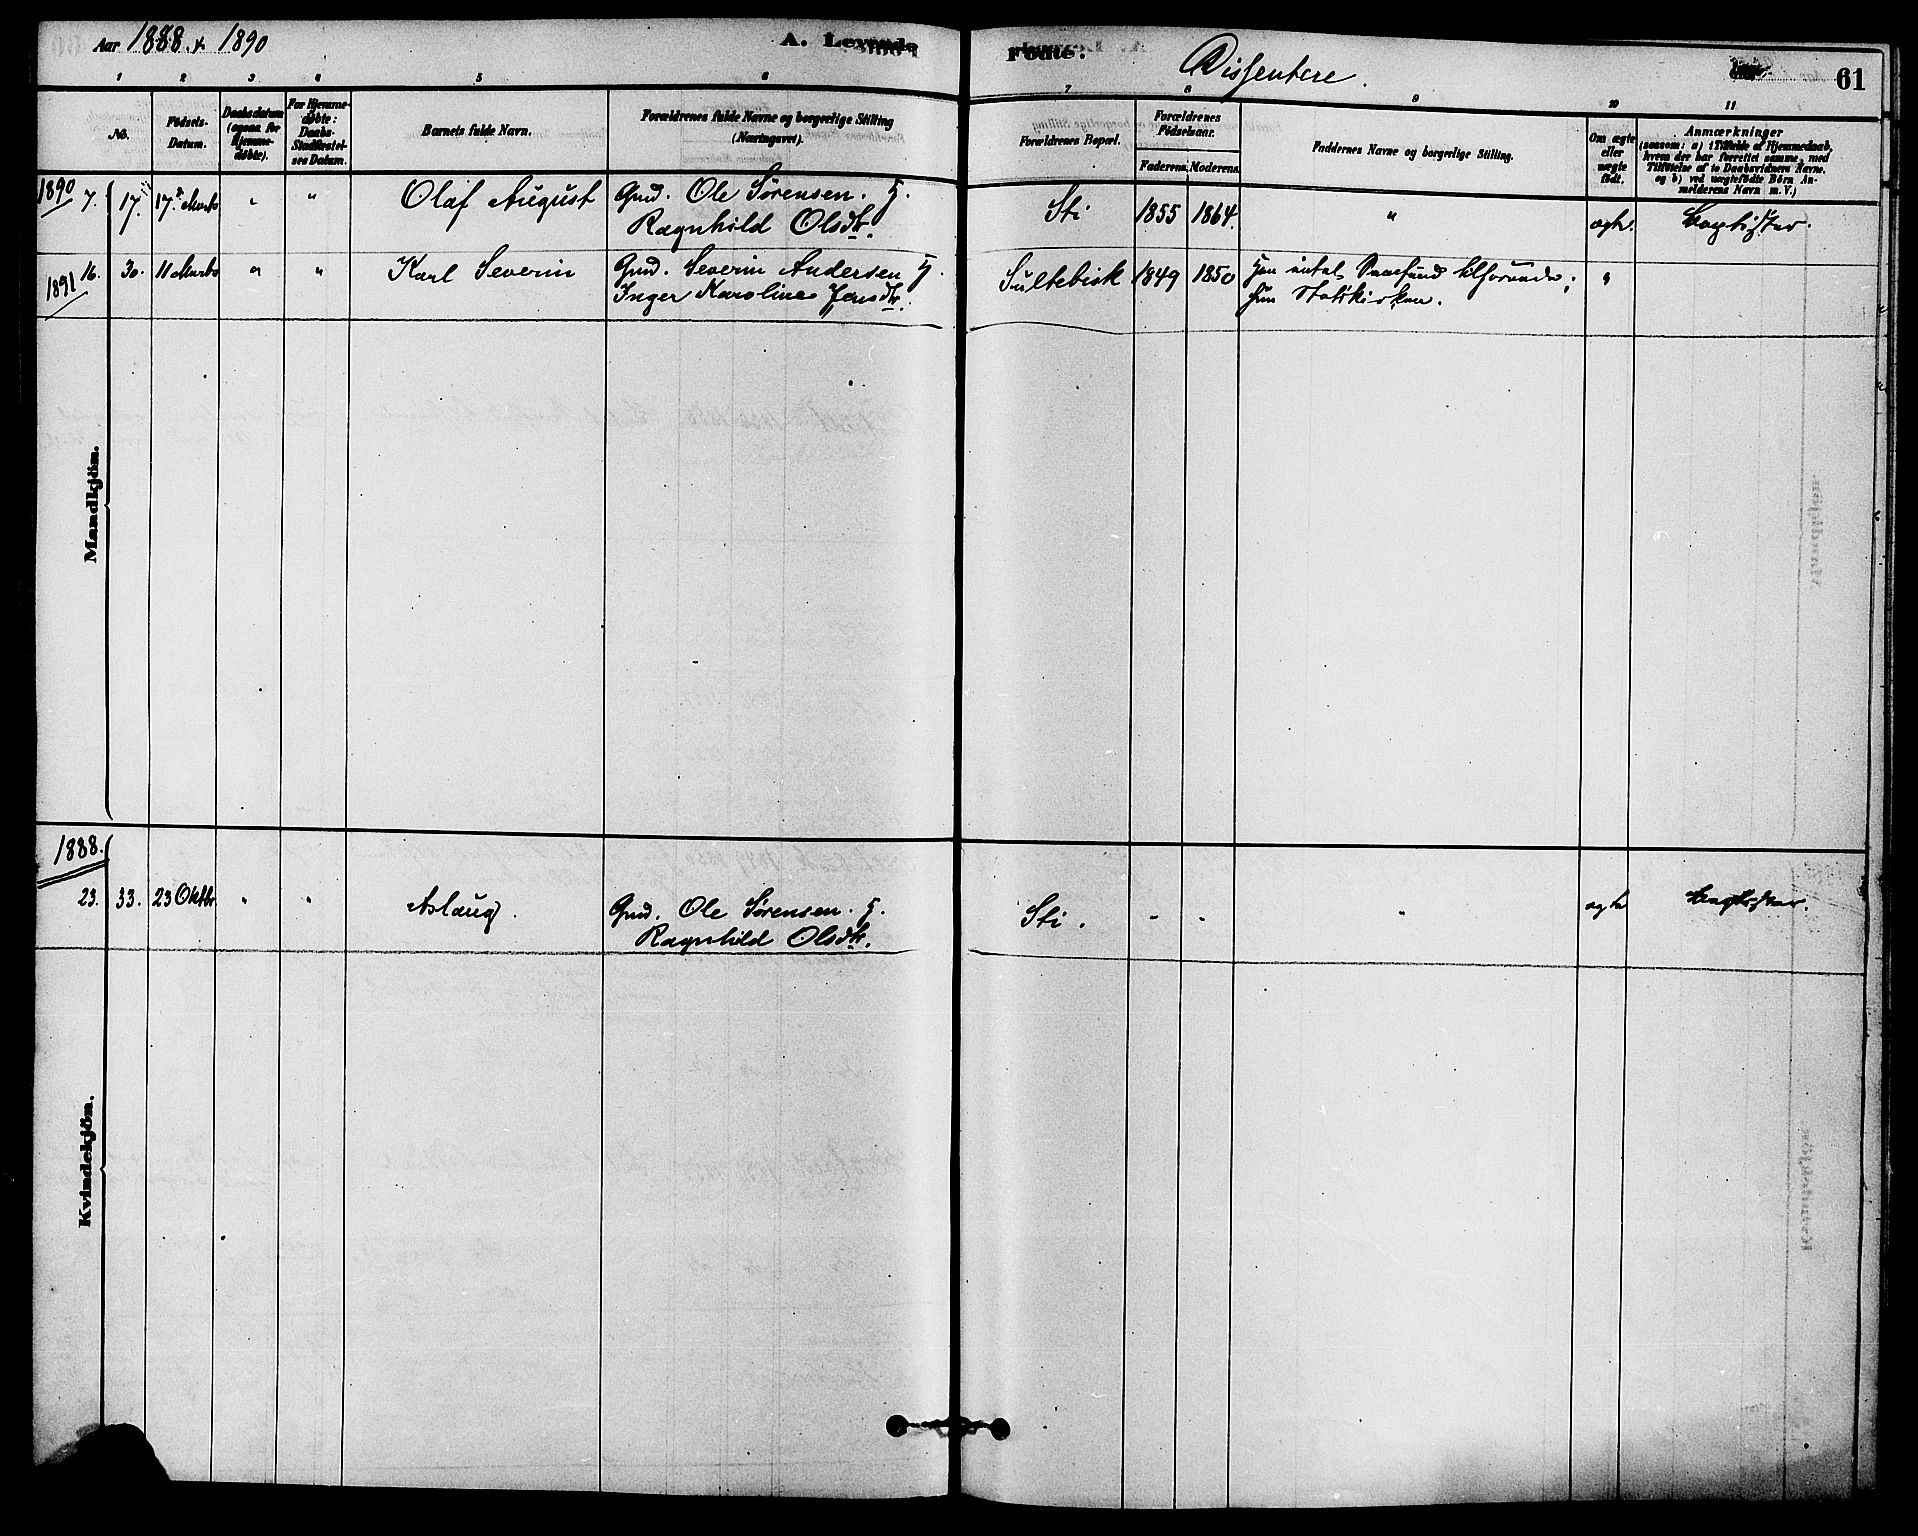 Aar 1888. & 1890
A. Levende
Fødte:
Dissentere.
61
1 2 3 4 5 6 7 8 9 10 11
No.
Fødsels-
Datum.
Daabsdatum
(ogsaa for
Hjemme-
døbte).
For Hjemme-
døbte:
Daabs-
Stadfæstel-
ses Datum.
Barnets fulde Navn.
Forældrenes fulde Navne og borgerlige Stilling
(Næringsvei).
Forældrenes Bopæl.
Forældrenes
Fødselsaar.
Faderens. Moderens.
Faddernes Navne og borgerlige Stilling.
Om ægte
eller
uægte
født.
Anmærkninger
(saasom: a) i Tilfælde af Hjemmedaab,
hvem der har forrettet samme, med
Tilføielse af to Daabsvidners Navne,
og b) ved uægtefødte Børn An-
melderens Navn m. V.)
Mandkjön.
1890 7. 17. 17. Marts " " Olaf August Gmd. Ole Sørensen. Sti 1855 1864. " ægte. Baptister.
Ragnhild Olsdtr.
1891 16. 30. 11 Marts " " Karl Severin Gmd. Severin Andersen Sultebisk 1849 1850 Samfund tilforende; "
Inger Karoline Jensdtr. hun Statskirken.
Kvindekjön.
1888.
23. 33. 23 Oktbr " " Aslaug. Gmd. Ole Sørensen. Sti. " " " ægte Baptister.
Ragnhild Olsdtr.